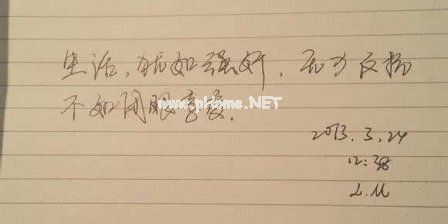 生活，就如强奸，无力反抗
不如闭眼享受.
www.pHome.NET
2013.3.24
12:38
L.M